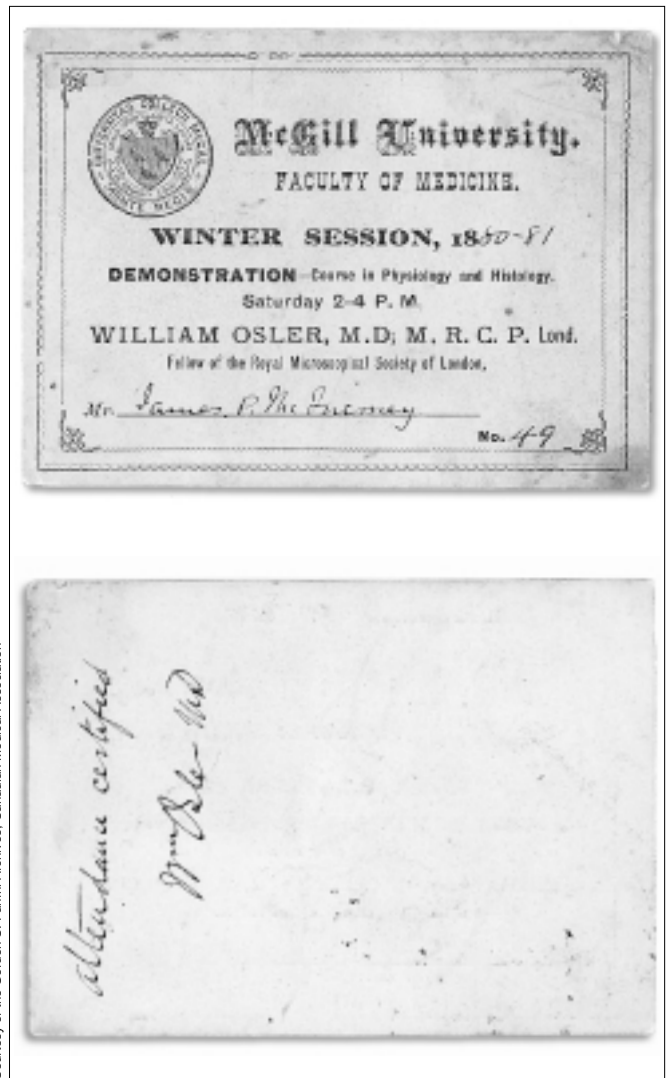 McGill University.
FACULTY OF MEDICINE.
WINTER SESSION, 1880-81
DEMONSTRATION—Course in Physiology and Histology.
Saturday 2-4 P. M.
WILLIAM OSLER, M.D; M. R. C. P. Lond.
Fellow of the Royal Microscopical Society of London.
Mr. James P.
No. 49
attendance certified
Wm Osler MD
Canadian Medical Association